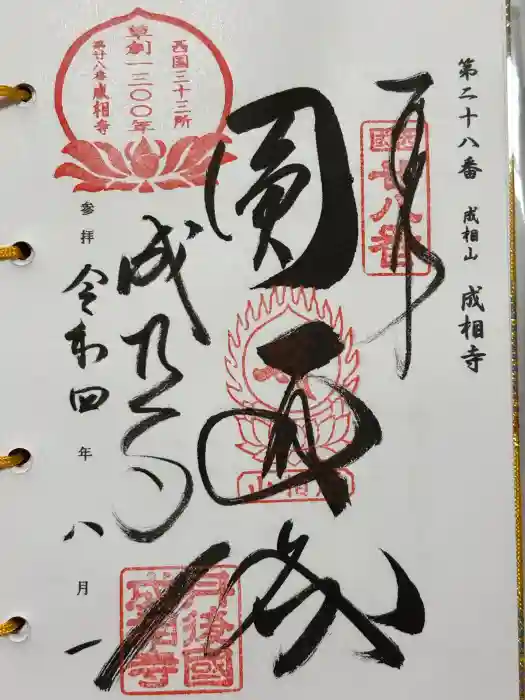 第二十八番 成相山 成相寺
奉拝
西国廿八番
圓通城
成相山
成相寺
丹後國成相寺
西国三十三所
草創一三〇〇年
第廿八番 成相寺
参拝 令和四年 八月 一